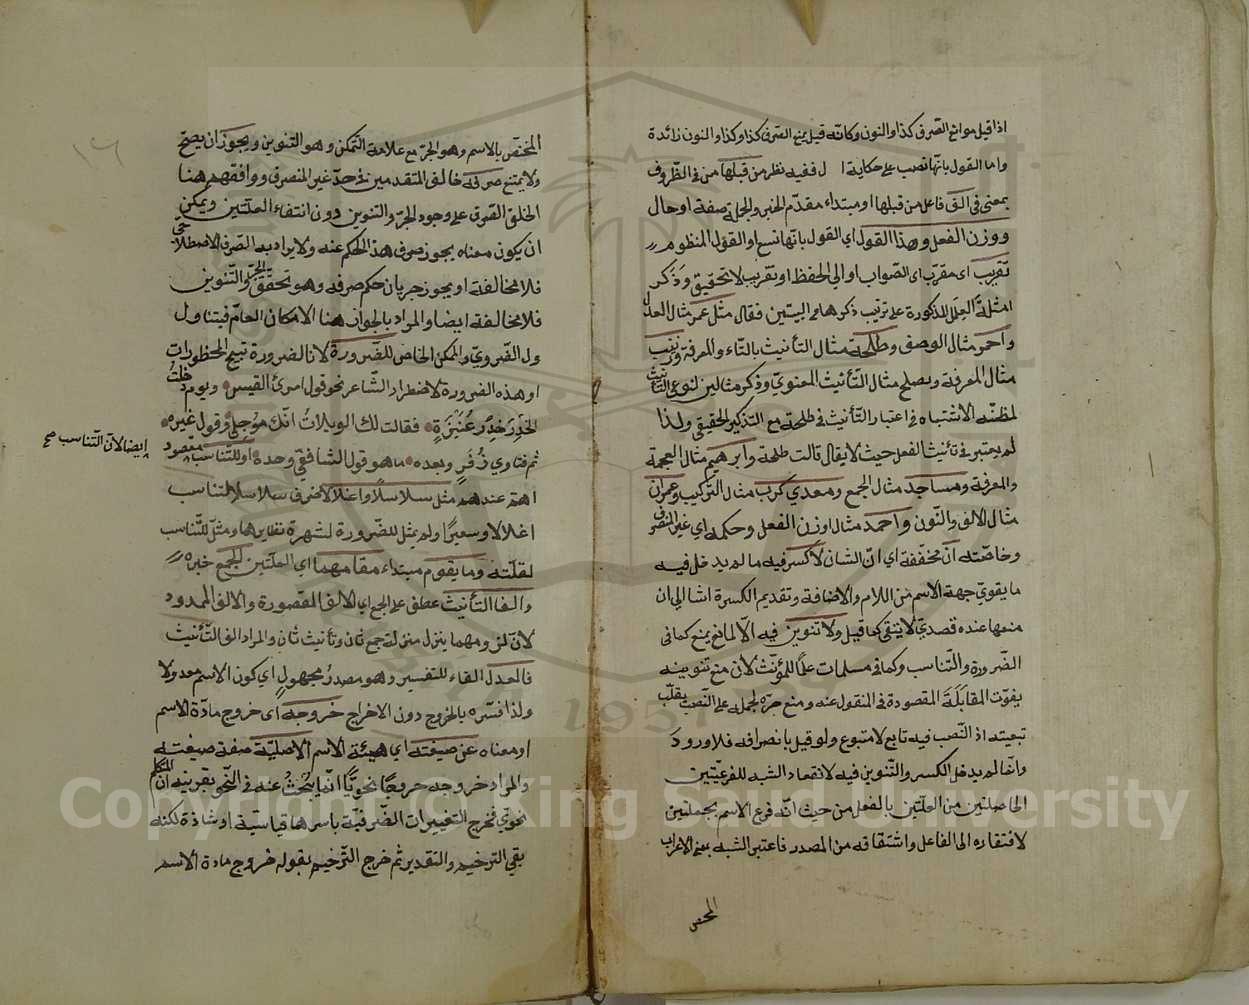 اذا قيل موانع الصرف كذا والنون وكانه قيل يمنع الصرف كذا وكذا والنون زائدة
واما القول بانها نصب على حكاية ا ل ففيه نظر من قبلها من في الظروف
بمعنى في الق فاعل من قبلها او مبتداء مقدم الخبر والجملة صفة او حال
ووزن الفعل وهذا القول اي القول بانها تسع او القول المنظوم
تقريب اى مقرب اى الصواب او الى الحفظ او تقريب لا تحقيق وذكر
امثلة العلل المذكورة على ترتيب ذكرها في البيتين فقال مثل عمر مثال العدل
واحمر مثال الوصف وطلحة مثال التأنيث بالتاء والمعرفة وزينب
مثال المعرفة ويصلح مثال التأنيث المعنوي وذكر مثالين لنوعي التأنيث
لمظنه الاشتباه في اعتبار التأنيث في طلحة مع التذكير الحقيقي ولذا
لم يعتبر في تأنيث الفعل حيث لا يقال قالت طلحة وابرهيم مثال العجمة
والمعرفة ومساجد مثال الجمع ومعدي كرب مثال التركيب وعمران
مثال الالف والنون واحمد مثال اوزن الفعل وحكمه اي غير المنصرف
وخاصته ان مخففة اي ان الشان لا كسر فيه ما لم يدخل فيه
ما يقوي جهة الاسم من اللام والاضافة وتقديم الكسرة اشا الى ان
منعها عنده قصدي لا ينبغي كما قيل ولا تنوين فيه الا لمانع يمنع كما في
الضرورة والتناسب وكما في مسلمات علما للمؤنث لان منع تنوينه
يفوت المقابلة المقصودة في المنقول عنه ومنع جره لحمله على النصب بقلب
تبعيته اذ النصب فيه تابع لا متبوع ولو قيل بانصرافه فلا ورود
وانما لم يدخل الكسر والتنوين فيه لانعقاد الشبه للفرعيتين
الحاصلتين من العلتين بالفعل من حيث انه فرع الاسم بجملتين
لافتقاره الى الفاعل واشتقاقه من المصدر فاعتبر الشبه بمنع الاعراب
المختص
١٦
المختص بالاسم وهو الجر مع علامة التمكن وهو التنوين ويجوز ان يصح
ولا يمتنع صرفه خالف المتقدمين في حد غير المنصرف ووافقهم هنا
الخلق الصرف على وجود الجر والتنوين دون انتفاء العلتين ويمكن
ان يكون معناه يجوز صرف هذا الحكم عنه ولا يراد به الصرف الاصطلاحي
فلا مخالفة او يجوز جريان حكم صرفه وهو تحقق الجر والتنوين
فلا مخالفة ايضا والمراد بالجواز هنا الامكان العام فيتناول
ول الضروري والممكن الخاص للضرورة لان الضرورة تبيح المحظورات
او هذه الضرورة لاضطرار الشاعر نحو قول امرئ القيس ويوم دخلت
الخدر خدر عنيزة فقالت لك الويلات انك مرجلي وقول غيره
ثم فتاوي زفر وبعده ما هو قول الشافعي وحده او للتناسب مقصود
ايضا لان التناسب صح
اهم عندهم مثل سلاسلا واغلالا فنون سلاسلا لتناسب
اغلالا وسعيرا ولم يمثل للضرورة لشهرة نظايرها ومثل للتناسب
لقلته وما يقوم مبتداء مقامهما اي العلتين الجمع خبره
والفا التأنيث عطف على الجمع اي الالف المقصورة والالف الممدودة
لان لزومهما ينزل منزلة جمع ثان وتأنيث ثان والمراد الفا التأنيث
فالعدل الفاء للتفسير وهو مصدر مجهول اي كون الاسم معدولا
ولذا فسره بالخروج دون الاخراج خروجه اى خروج مادة الاسم
او معناه عن صيغته اي هيئة الاسم الاصلية صفة صيغته
والمراد خروجه خروجا نحويا انما يبحث عنه في النحو بقرينة ان المتكلم
نحوي فخرج التغييرات الصرفية باسرها قياسية او شاذة لكنه
بقي الترخيم والتقدير ثم خرج الترخيم بقوله خروج مادة الاسم
Copyright © King Saud University
1957